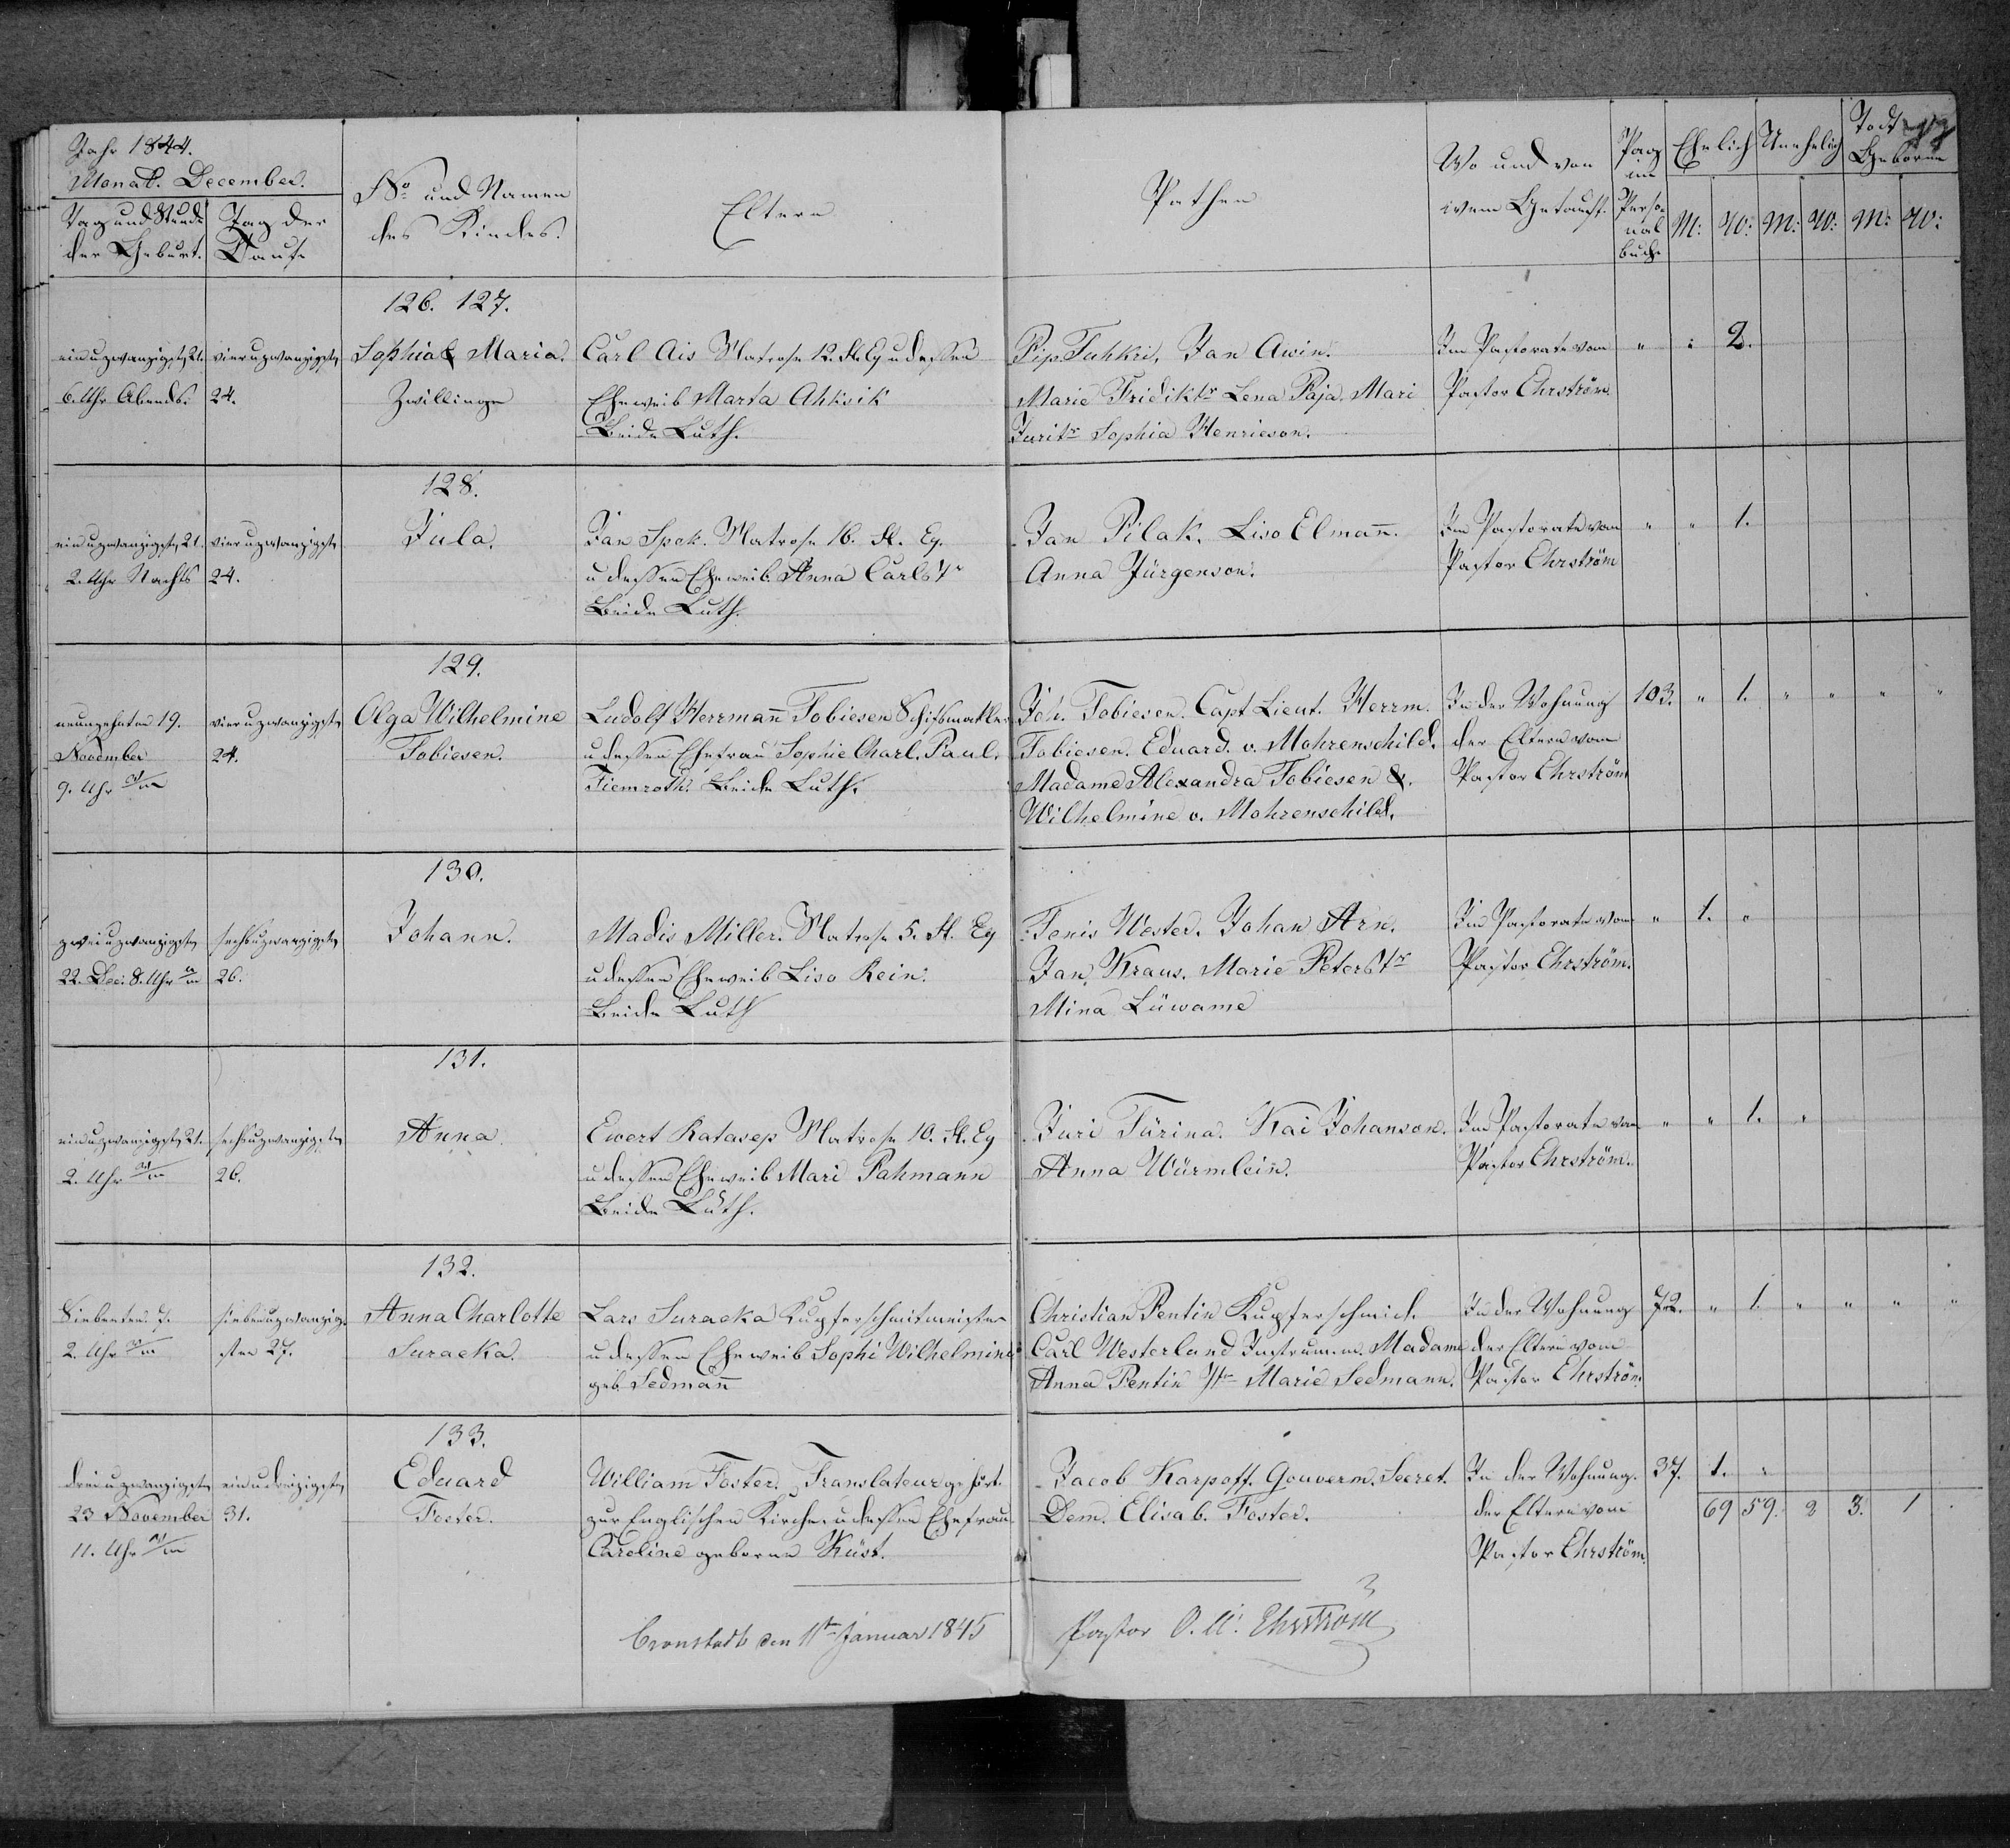 Jahr 1844.
Monat. December.
Tag und Stunde der Geburt.
Tag der Taufe
No und Namen des Kindes.
Eltern
Pathen
Wo und von wem Getauft.
Pag im Personal buch
Ehelich
Unehelich
Todt Geborene
M: W: M: W: M: W:
126. 127.
einuzwanzigsten 21. vieruzwanzigsten Sophia & Maria. Carl Ais Matrose 12. Fl. Eq udessen Pip Tuhkri, Jan Awin. Im Pastorate vom " " 2.
6. Uhr Abends. 24. Zwillinge Eheweib Marta Ahksik Marie Fridiktr Lena Paja, Mari Pastor Ehrström
Beide Luth. Juritr Sophia Henrieson.
128.
einuzwanzigsten 21. vieruzwanzigsten Jula. Jan Spek. Matrose 16. Fl. Eq. Jan Pilak. Liso Elmañ. Im Pastorate vom " " 1.
2. Uhr Nachts 24. u dessen Eheweib Anna Carlstr Anna Jürgenson. Pastor Ehrström
Beide Luth.
129.
neunzehnten 19. vieruzwanzigsten Olga Wilhelmine Ludolf Herrmañ Tobiesen Schifsmakler Joh. Tobiesen. Capt Lieut. Herrm. In der Wohnung 103. " 1. " " " "
November 24. Tobiesen. u dessen Ehefrau Sophie Charl. Paul. Tobiesen. Eduard. v. Mohrenschild. der Eltern vom
9. Uhr Tiemroth. Beide Luth. Madame Alexandra Tobiesen &. Pastor Ehrström
Wilhelmine v. Mohrenschild.
130.
zweiuzwanzigsten sechsuzwanzigsten Johann. Madis Miller. Matrose 5. Fl. Eq Tenis Wester. Johan Arn. Im Pastorate vom " 1. "
22. Dec. 8. Uhr 26. u dessen Eheweib Liso Rein. Jan Kraus. Marie Peterstr Pastor Ehrström.
Beide Luth Mina Lüwame
131.
einuzwanzigsten 21. sechsuzwanzigsten Anna. Ewert Katasep Matrose 10. Fl. Eq Juri Türina. Kai Johanson. Im Pastorate vom " " 1. "
2. Uhr 26. u dessen Eheweib Mari Pahmann Anna Würmlein. Pastor Ehrström.
Beide Luth.
132.
Siebenten. 7. siebenuzwanzig- Anna Charlotte Lars Suracka Kupferschmitmeister Christian Pentin Kupferschmid. In der Wohnung 72. " 1. " " " "
2. Uhr sten 27. Suracka. u dessen Eheweib Sophi Wilhelmine Carl Westerland Instrum.m. Madame der Eltern vom
geb. Sedmañ Anna Pentin Marie Sedmann. Pastor Ehrström
133.
dreiuzwanzigsten einudreizigsten Eduard William Foster. Translateur gehört. Jacob Karpoff. Gouverm. Secret. In der Wohnung. 37. 1. "
23 November 31. Foster. zur Englischen Kirche. u dessen Ehefrau Dem. Elisab. Foster. der Eltern vom 69 59. 2 3. 1
11. Uhr Caroline geborne Küst. Pastor Ehrström.
Cronstadt den 11ten Januar 1845 Pastor Ehrström